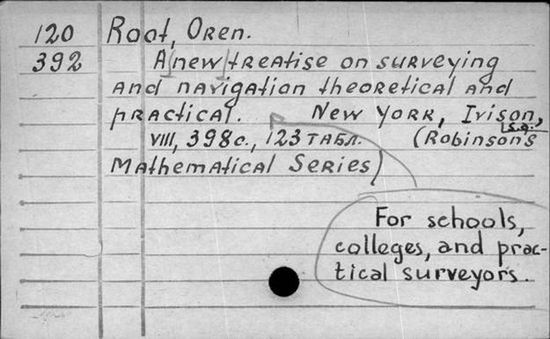 120 Root, Oren.
392 A new treatise on surveying
and navigation theoretical and
practical. New York, Ivison,
s.a.
VIII, 398с., 123 табл. (Robinson's
Mathematical Series)
For schools,
colleges, and prac-
tical surveyors.